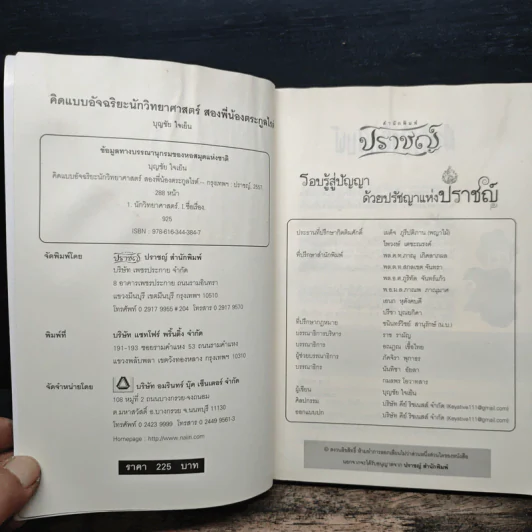 คิดแบบอัจฉริยะนักวิทยาศาสตร์ สองพี่น้องตระกูลไรท์
บุญชัย ใจเย็น
ข้อมูลทางบรรณานุกรมของหอสมุดแห่งชาติ
บุญชัย ใจเย็น
คิดแบบอัจฉริยะนักวิทยาศาสตร์ สองพี่น้องตระกูลไรท์-- กรุงเทพฯ : ปราชญ์, 2551
288 หน้า
1. นักวิทยาศาสตร์. I.ชื่อเรื่อง
925
ISBN : 978-616-344-384-7
จัดพิมพ์โดย ปราชญ์ สำนักพิมพ์
บริษัท เพชรประกาย จำกัด
3 อาคารเพชรประกาย ถนนรามอินทรา
แขวงมีนบุรี เขตมีนบุรี กรุงเทพฯ 10510
โทรศัพท์ 0 2917 9955 # 204 โทรสาร 0 2917 9570
พิมพ์ที่ บริษัท แซทโฟร์ พริ้นติ้ง จำกัด
191-193 ซอยรามคำแหง 53 ถนนรามคำแหง
แขวงพลับพลา เขตวังทองหลาง กรุงเทพฯ 10310
จัดจำหน่ายโดย บริษัท อมรินทร์ บุ๊ค เซ็นเตอร์ จำกัด
108 หมู่ที่ 2 ถนนบางกรวย-จงถนอม
ต.มหาสวัสดิ์ อ.บางกรวย จ.นนทบุรี 11130
โทรศัพท์ 0 2423 9999 โทรสาร 0 2449 9561-3
Homepage : http://www.naiin.com
ราคา 225 บาท
สำนักพิมพ์
ปราชญ์
รอบรู้สู่ปัญญา
ด้วยปรัชญาแห่งปราชญ์
ประธานที่ปรึกษากิตติมศักดิ์
ไพวงษ์ เตชะณรงค์
ที่ปรึกษาสำนักพิมพ์
เอนก
ปรีชา
ที่ปรึกษากฎหมาย
บรรณาธิการบริหาร ราช รามัญ
บรรณาธิการ
ผู้ช่วยบรรณาธิการ
นันทิชา
กมลพร
ผู้เขียน บุญชัย ใจเย็น
ศิลปกรรม บริษัท คีย์ จำกัด
ออกแบบปก บริษัท คีย์ จำกัด
© สงวนลิขสิทธิ์
นอกจากจะได้รับอนุญาตจาก ปราชญ์ สำนักพิมพ์